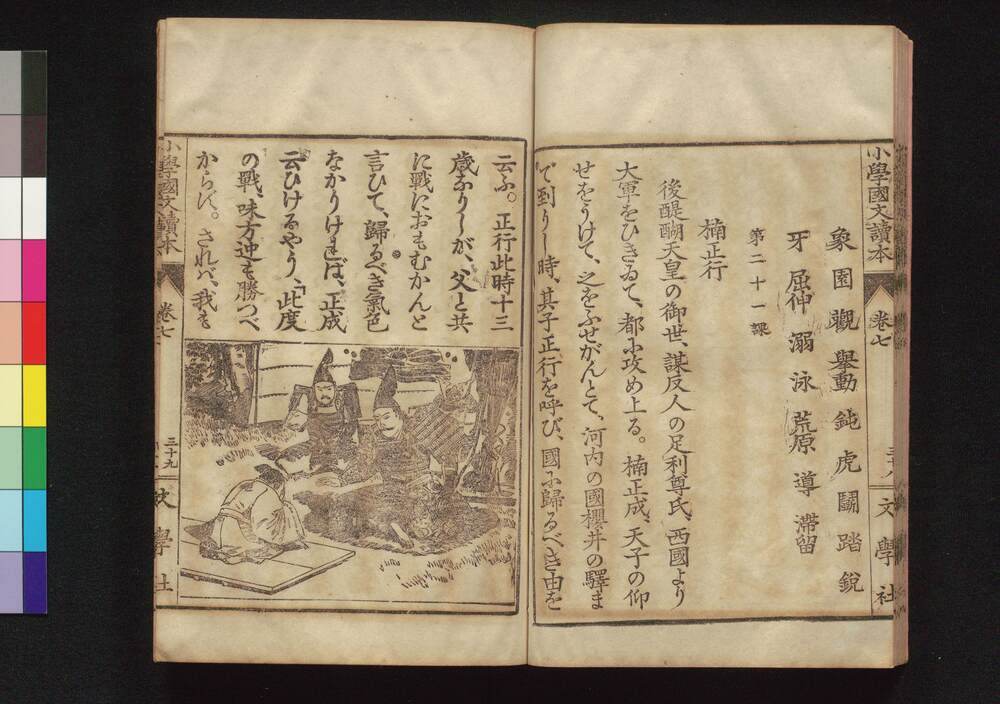 小學國文讀本
卷七
文學社
象 園 觀 擧動 鈍 虎 鬭 踏 銳
牙 屈伸 溺 泳 荒原 導 滯留
第二十一課
楠正行
後醍醐天皇の御世、謀反人の足利尊氏、西國より
大軍をひきゐて、都に攻め上る。楠正成、天子の仰
せをうけて、之をふせがんとて、河内の國櫻井の驛ま
で到りし時、其子正行を呼び、國に歸るべき由を
云ふ。正行此時十三
歳なりしが、父と共
に戰におもむかんと
言ひて、歸るべき氣色
なかりければ、正成
云ひけるやう、「此度
の戰、味方迚も勝つべ
からず。されば、我も
小學國文讀本
卷七
三十九
文學社